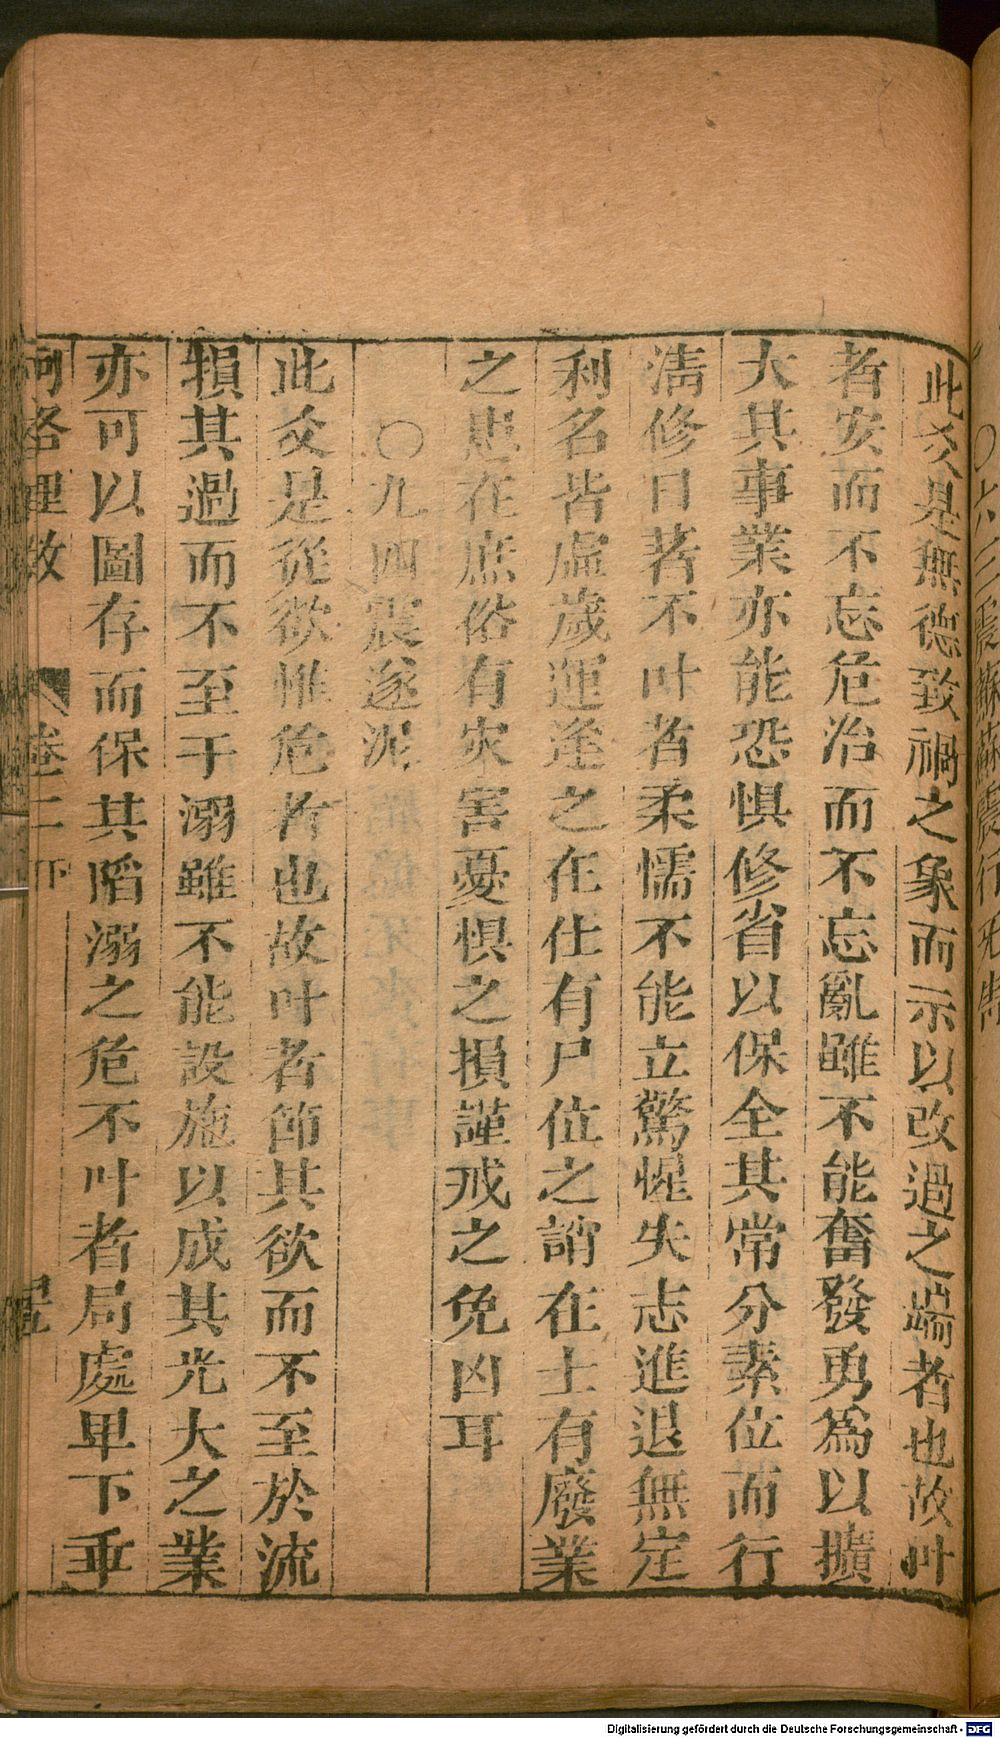 〇六三震蘇蘇震行无眚
此爻是無德致禍之象而示以改過之端者也故叶
者安而不忘危治而不忘亂雖不能奮發勇為以擴
大其事業亦能恐懼修省以保全其常分素位而行
清修日著不叶者柔懦不能立驚惶失志進退無定
利名皆虛歲運逢之在仕有尸位之誚在士有廢業
之患在庶俗有灾害憂惧之損謹戒之免凶耳
〇九四震遂泥
此爻是從欲惟危者也故叶者節其欲而不至於流
損其過而不至于溺雖不能設施以成其光大之業
亦可以圖存而保其陷溺之危不叶者局處卑下乖
河洛理数
卷二下
Digitalisierung gefördert durch die Deutsche Forschungsgemeinschaft - DFG